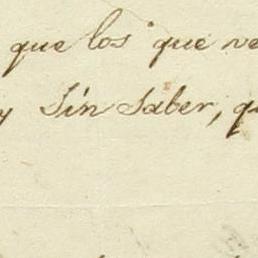 que los que ve
y Sin Saber, qu